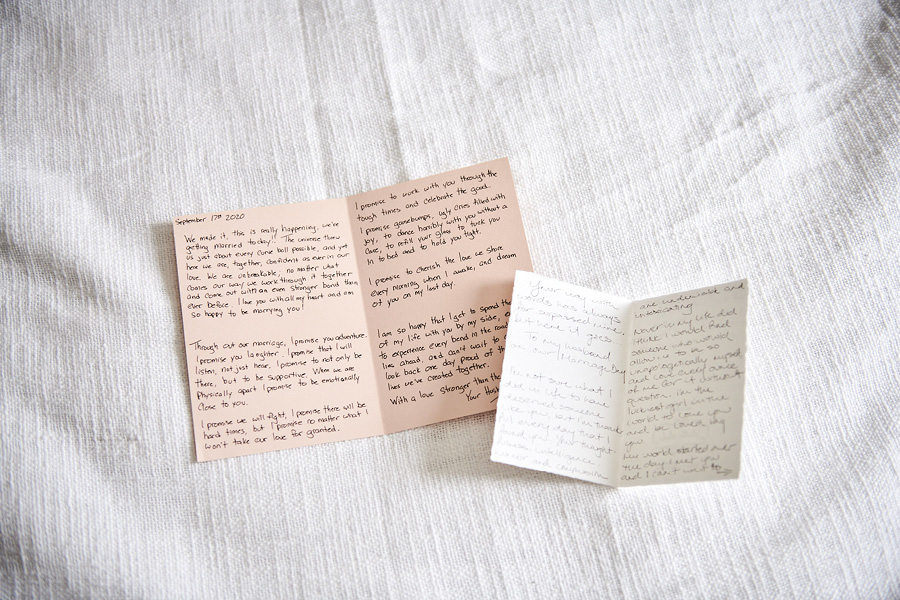 September 17th 2020
We made it, this is really happening, we're
getting married today!! The universe threw
us just about every curve ball possible, and yet
here we are, together, confident as ever in our
love. We are unbreakable, no matter what
comes our way we work through it together
and come out with an even stronger bond than
ever before. I love you with all my heart and am
so happy to be marrying you!
Through out our marriage, I promise you adventure.
I promise you laughter. I promise that I will
listen, not just hear. I promise to not only be
there, but to be supportive. When we are
physically apart I promise to be emotionally
close to you.
I promise we will fight, I promise there will be
hard times, but I promise no matter what I
won't take our love for granted.
I promise to work with you through the
tough times and celebrate the good.
I promise goosebumps, ugly ones filled with
joy, to dance horribly with you without a
care, to refill your glass to tuck you
in to bed and to hold you tight.
I promise to cherish the love we share
every morning when I awake, and dream
of you on my last day.
I am so happy that I get to spend the
of my life with you by my side,
to experience every bend in the road
lies ahead, and can't wait to
look back one day proud of the
lives we've created together.
With a love stronger than the
Your
Your way with
words always
here it goes
To my husband
not sure what I
did in life to have
someone
I thank
every day that I
intelligence
are undeniable and
Never in my life did
I think I would find
someone who would
allow me to be so
unapologetically myself
and not every once
question. I'm the
luckiest girl in the
world to love you
and be loved by
you
My world started over
the day I met you
and I can't wait to